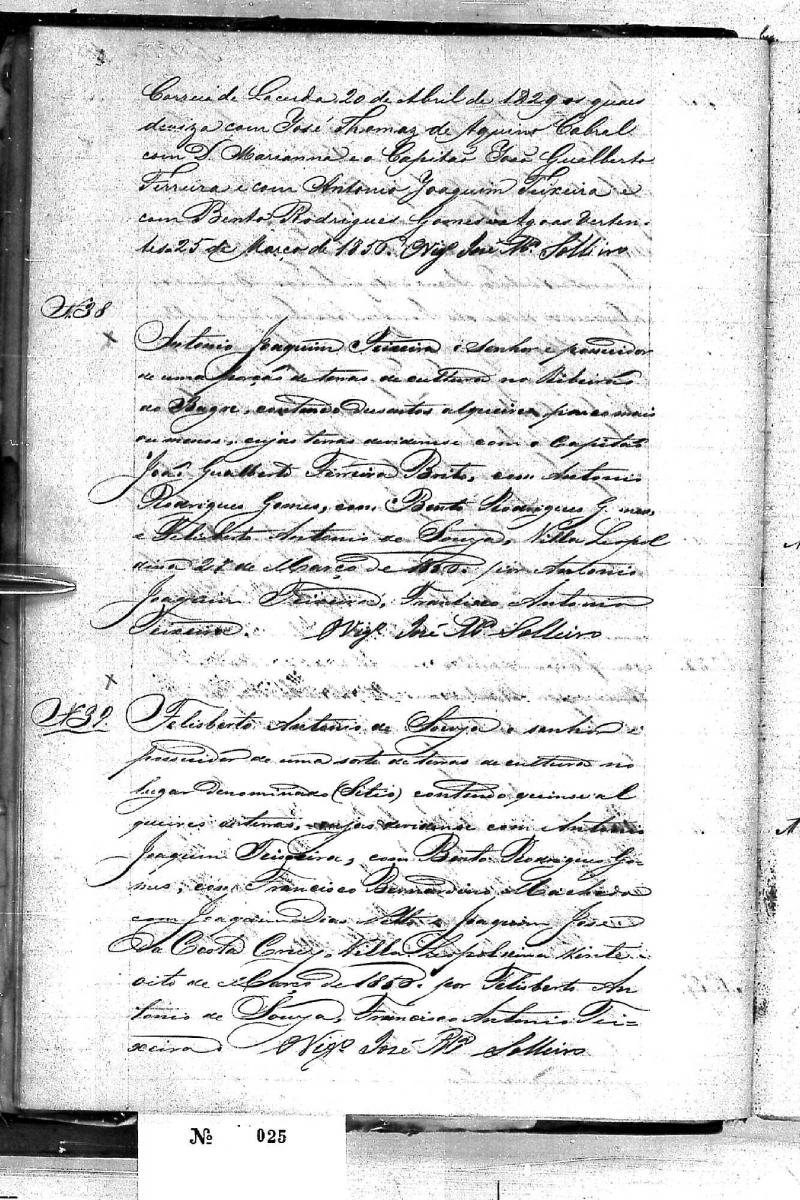 Correia de Lacerda 20 de Abril de 1829 os quaes
deviza com José Thomaz de Aquino Cabral
com D. Marianna e o Capitão João Gualberto
Ferreira e com Antonio Joaquim Teixeira e
com Bento Rodrigues Gomes Agoas Verten-
tes 25 de Março de 1856. O Vigº José Mª Solleiro
N. 38
Antonio Joaquim Teixeira é senhor e possuidor
de uma porção de terras de cultura no Ribeirão
do Bagre, contendo dusentos alqueires, pouco mais
ou menos, cujas terras devidense com o Capitão
João Gualberto Ferreira Brito, com Antonio
Rodrigues Gomes, com Bento Rodrigues Gomes,
e Felisberto Antonio de Souza, Villa Leopol
dina de Março de 1856. por Antonio
Joaquim Teixeira, Francisco Antonio
Teixeira. O Vigº José Mª Solleiro
N 39
Felisberto Antonio de Souza é senhor e
possuidor de uma sorte de terras de cultura no
lugar denominado (Sitio) contendo quinse al
queires de terras, cujas devidense com Antonio
Joaquim Teixeira, com Bento Rodrigues Go-
mes, com Francisco Bernardino Machado
com Joaquim Dias Netto e Joaquim José
da Costa Cruz, Villa Leopoldina Vinte
oito de Março de 1856. por Felisberto An
tonio de Souza, Francisco Antonio Tei=
xeira. O Vigº José Mª Solleiro
Nº 025